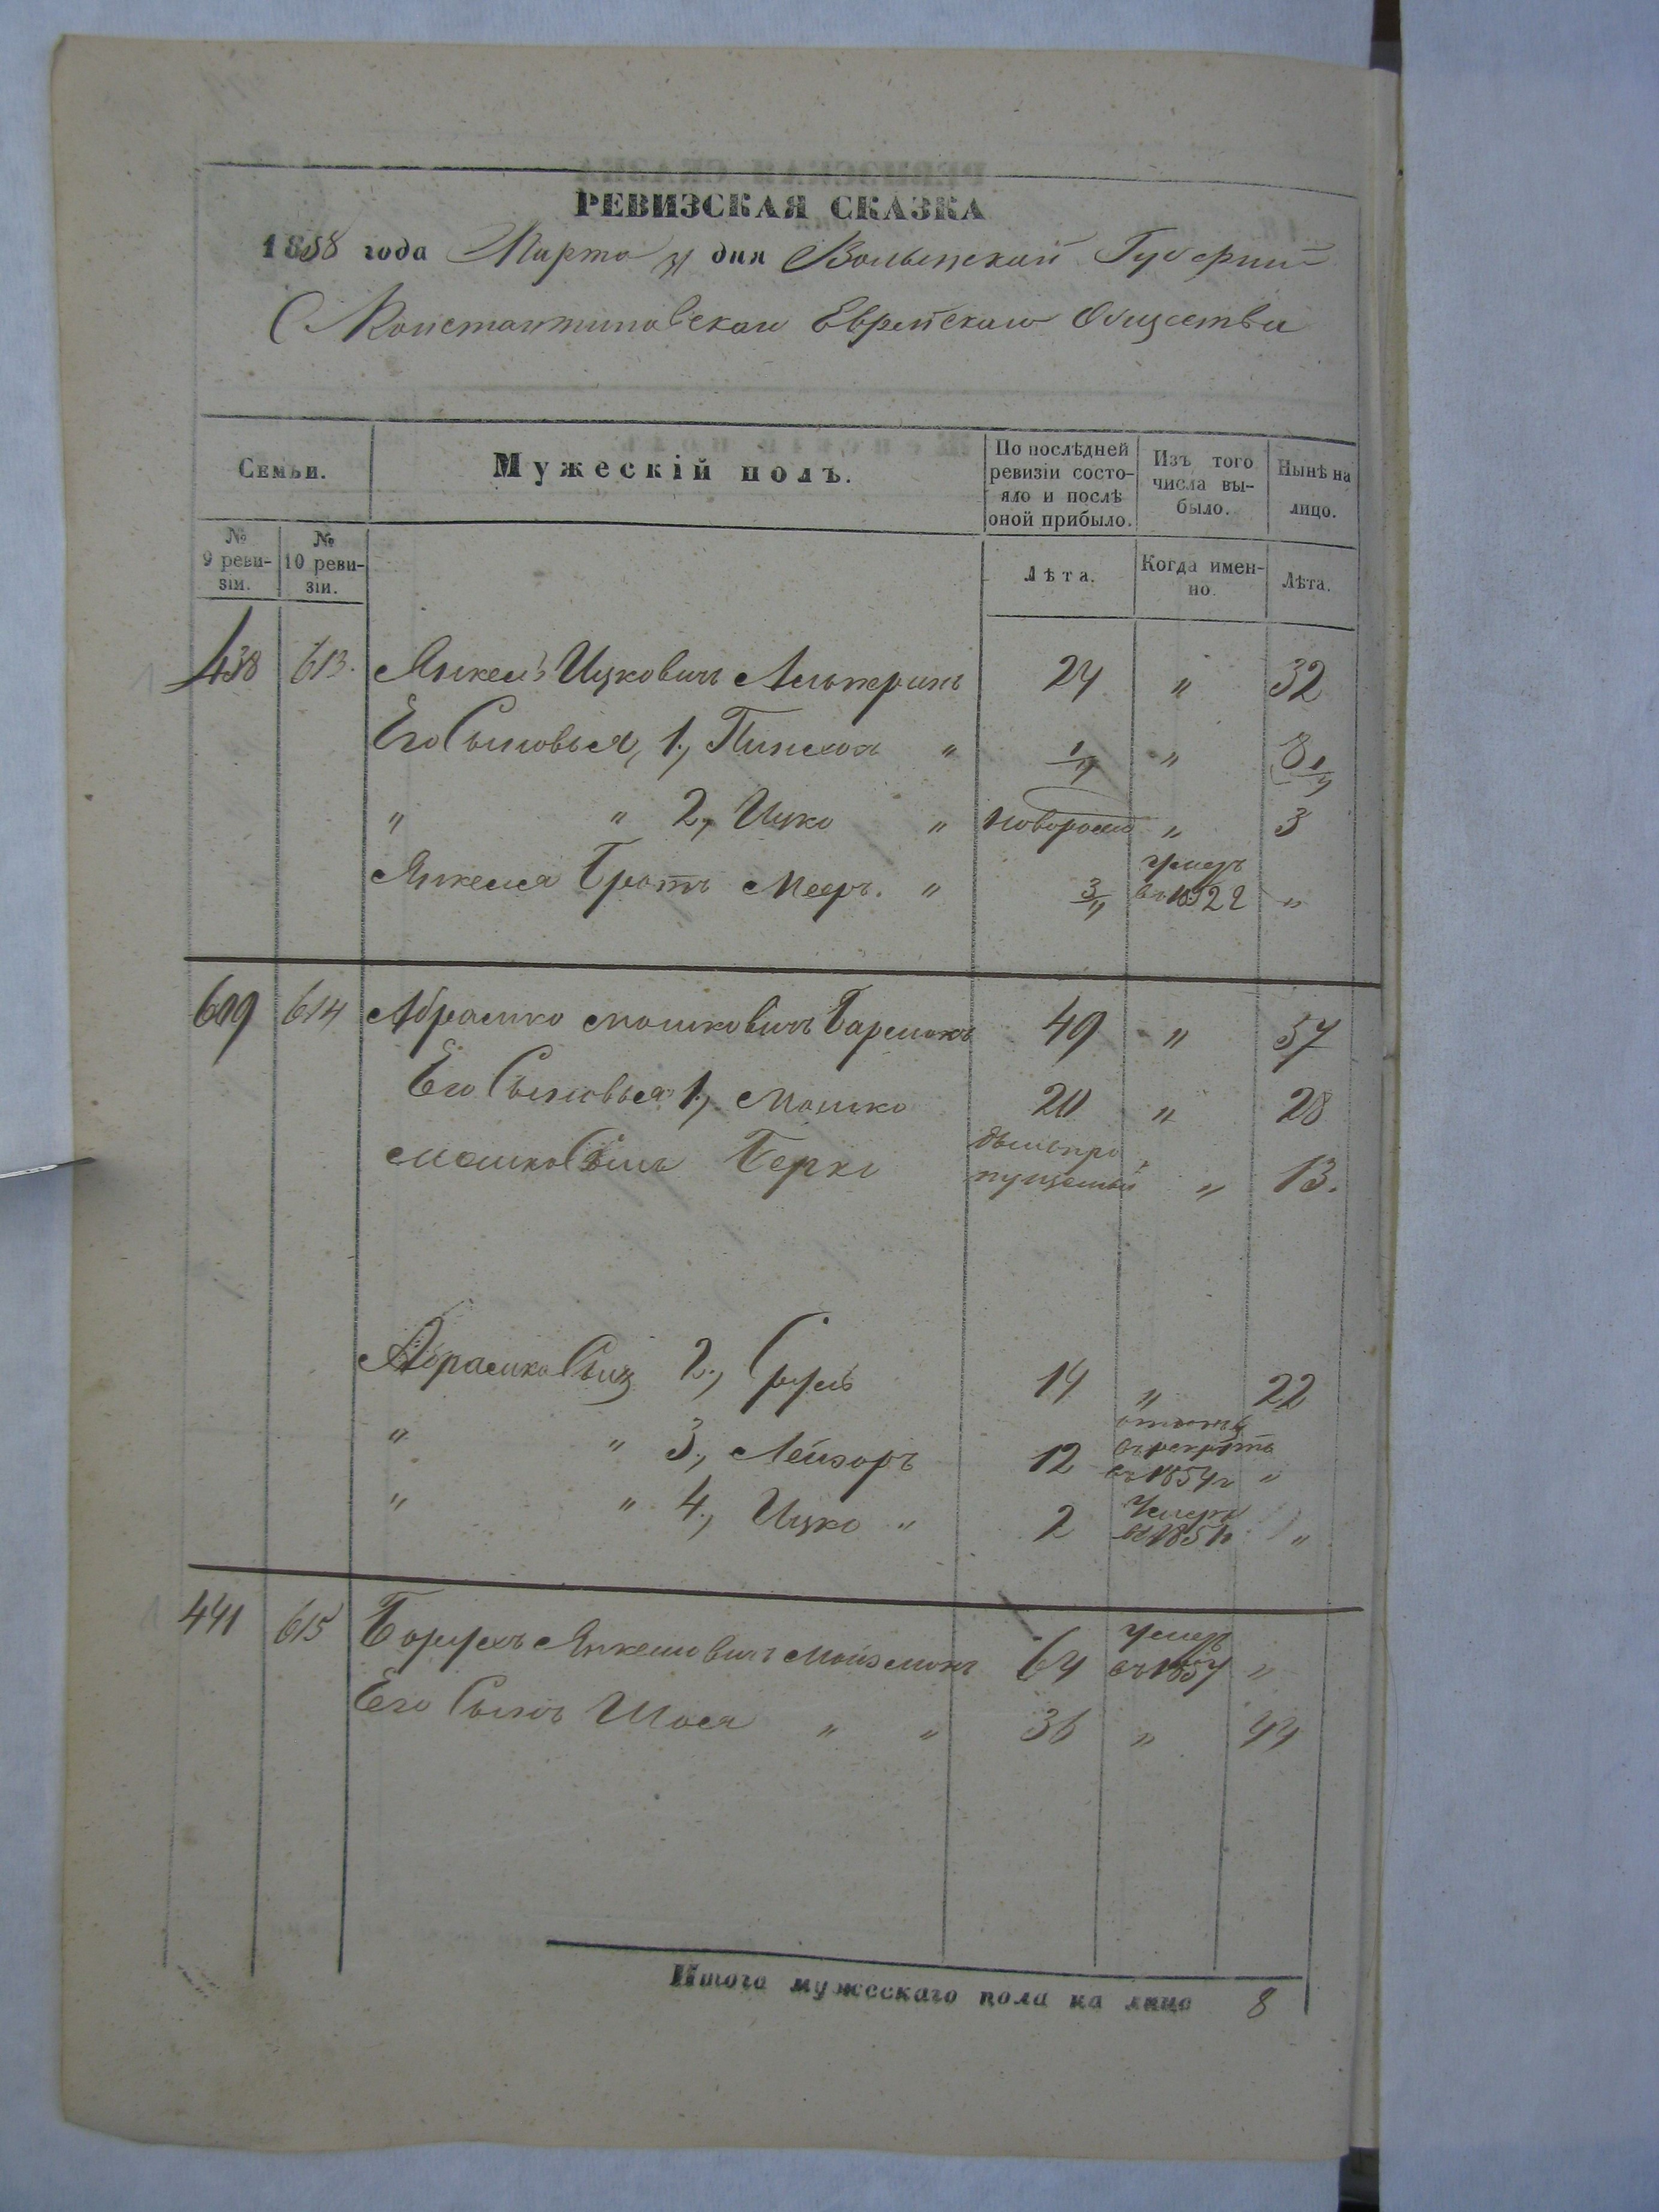 РЕВИЗСКАЯ СКАЗКА
1858 года Марта дня Волынской Губерний
Константиновскаго Еврейскаго Общества
Семьи.
Мужескій полъ.
По послѣдней ревизіи состояло и послѣ оной прибыло.
Изъ того числа выбыло.
Нынѣ на лицо.
№ 9 ревизіи.
№ 10 ревизіи.
Лѣта.
Когда именно.
Лѣта.
438 613. Янкель Ицковичъ Альтеринъ 24 " 32
Его Сыновья, 1., Пинхас " " 8
" " 2., Ицко " новорож " 3
Янкеля Братъ Меер. " умеръ въ 1852 г "
609 614 Абрамко Мошковичъ 49 " 57
Его Сыновья 1., Мошко 20 " 28
Мошка Сынъ Берко былъ пропущенный " 13.
Абрамка Сын 2., Сруль 14 " 22
" " 3., Лейзоръ 12 въ рекруты въ 1854 г "
" " 4., Ицко " 2 Умеръ "
441 615 Борухъ Янкелевичъ Мойзман 64 умеръ въ 1857 "
Его Сынъ Шоея " " 36 " 44
Итого мужескаго пола на лицо 8